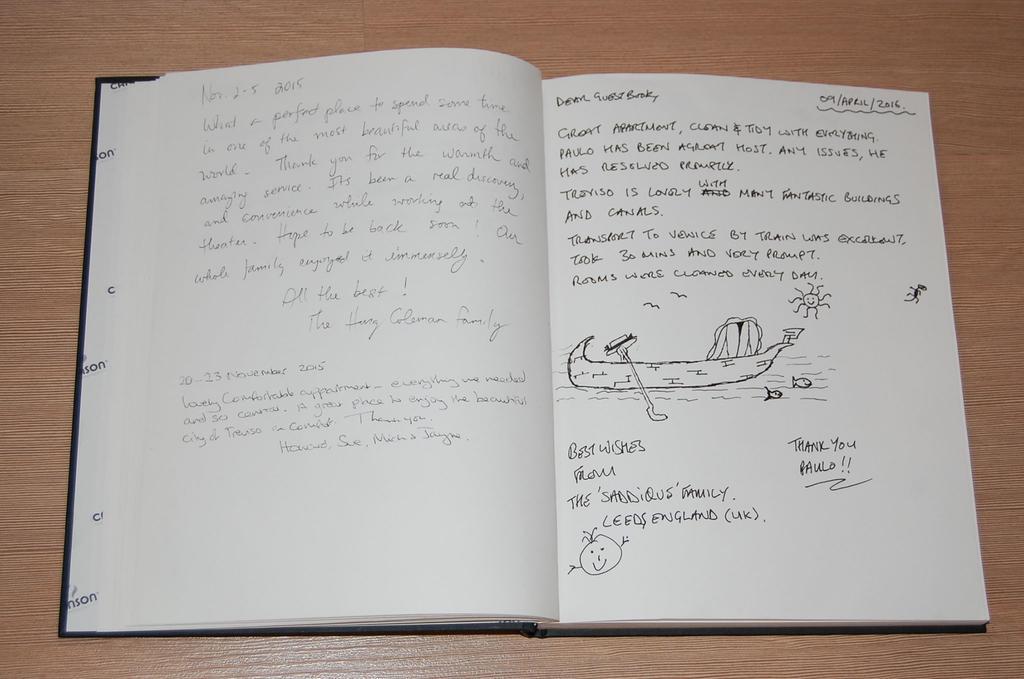 Nov. 2-5 2015
What a perfect place to spend some time
in one of the most beautiful areas of the
world. Thank you for the warmth and
amazing service. Its been a real discovery,
and convenience while working at the
theater. Hope to be back soon! Our
whole family enjoyed it immensely.
All the best!
The Coleman Family
20-23 November 2015
Lovely Comfortable appartment - everything we needed
and so central. A great place to enjoy the beautiful
city of Treviso in comfort. Thank you.
Howard, Sue,
DEAR GUESTBOOK,
09/APRIL/2016.
GREAT APARTMENT, CLEAN & TIDY WITH EVERYTHING.
PAULO HAS BEEN A GREAT HOST. ANY ISSUES, HE
HAS RESOLVED PROMPTLY.
TREVISO IS LOVELY WITH MANY FANTASTIC BUILDINGS
AND CANALS.
TRANSPORT TO VENICE BY TRAIN WAS EXCELLENT.
TOOK 30 MINS AND VERY PROMPT.
ROOMS WERE CLEANED EVERY DAY.
BEST WISHES
FROM
THE 'SADDIQUE' FAMILY.
LEEDS, ENGLAND (UK).
THANK YOU
PAULO!!
on
son
nson